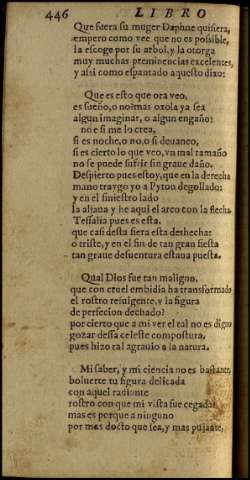 446 LIBRO
Que fuera su muger Daphne quisiera,
empero como vee que no es possible,
la escoge por su arbol, y la otorga
muy muchas preminencias excelentes,
y assi como espantado aquesto dize:
Que es esto que ora veo,
es sueño, o no? mas oxala ya sea
algun imaginar, o algun engaño:
no e si me lo crea,
si es noche, o no, o si deuaneo,
si es cierto lo que veo, vn mal tamaño
no se puede sufrir sin graue daño.
Despierto pues estoy, que en la derecha
mano traygo yo a Pyton degollado:
y en el siniestro lado
la aljaua y he aqui el arco con la flecha
Tessalia pues es esta.
que casi desta fiera esta deshecha:
o triste, y en el fin de tan gran fiesta
tan graue desuentura estaua puesta.
Qual Dios fue tan maligno,
que con cruel embidia ha transformado
el rostro refulgente, y la figura
de perfecion dechado?
por cierto que a mi ver el tal no es digno
gozar dessa celeste compostura,
pues hizo tal agrauio a la natura.
Mi saber, y mi ciencia no es bastante,
boluerte tu figura delicada
con aquel radiante
rostro con que mi vista fue cegada:
mas es porque a ninguno
por mas docto que sea, y mas pujante,